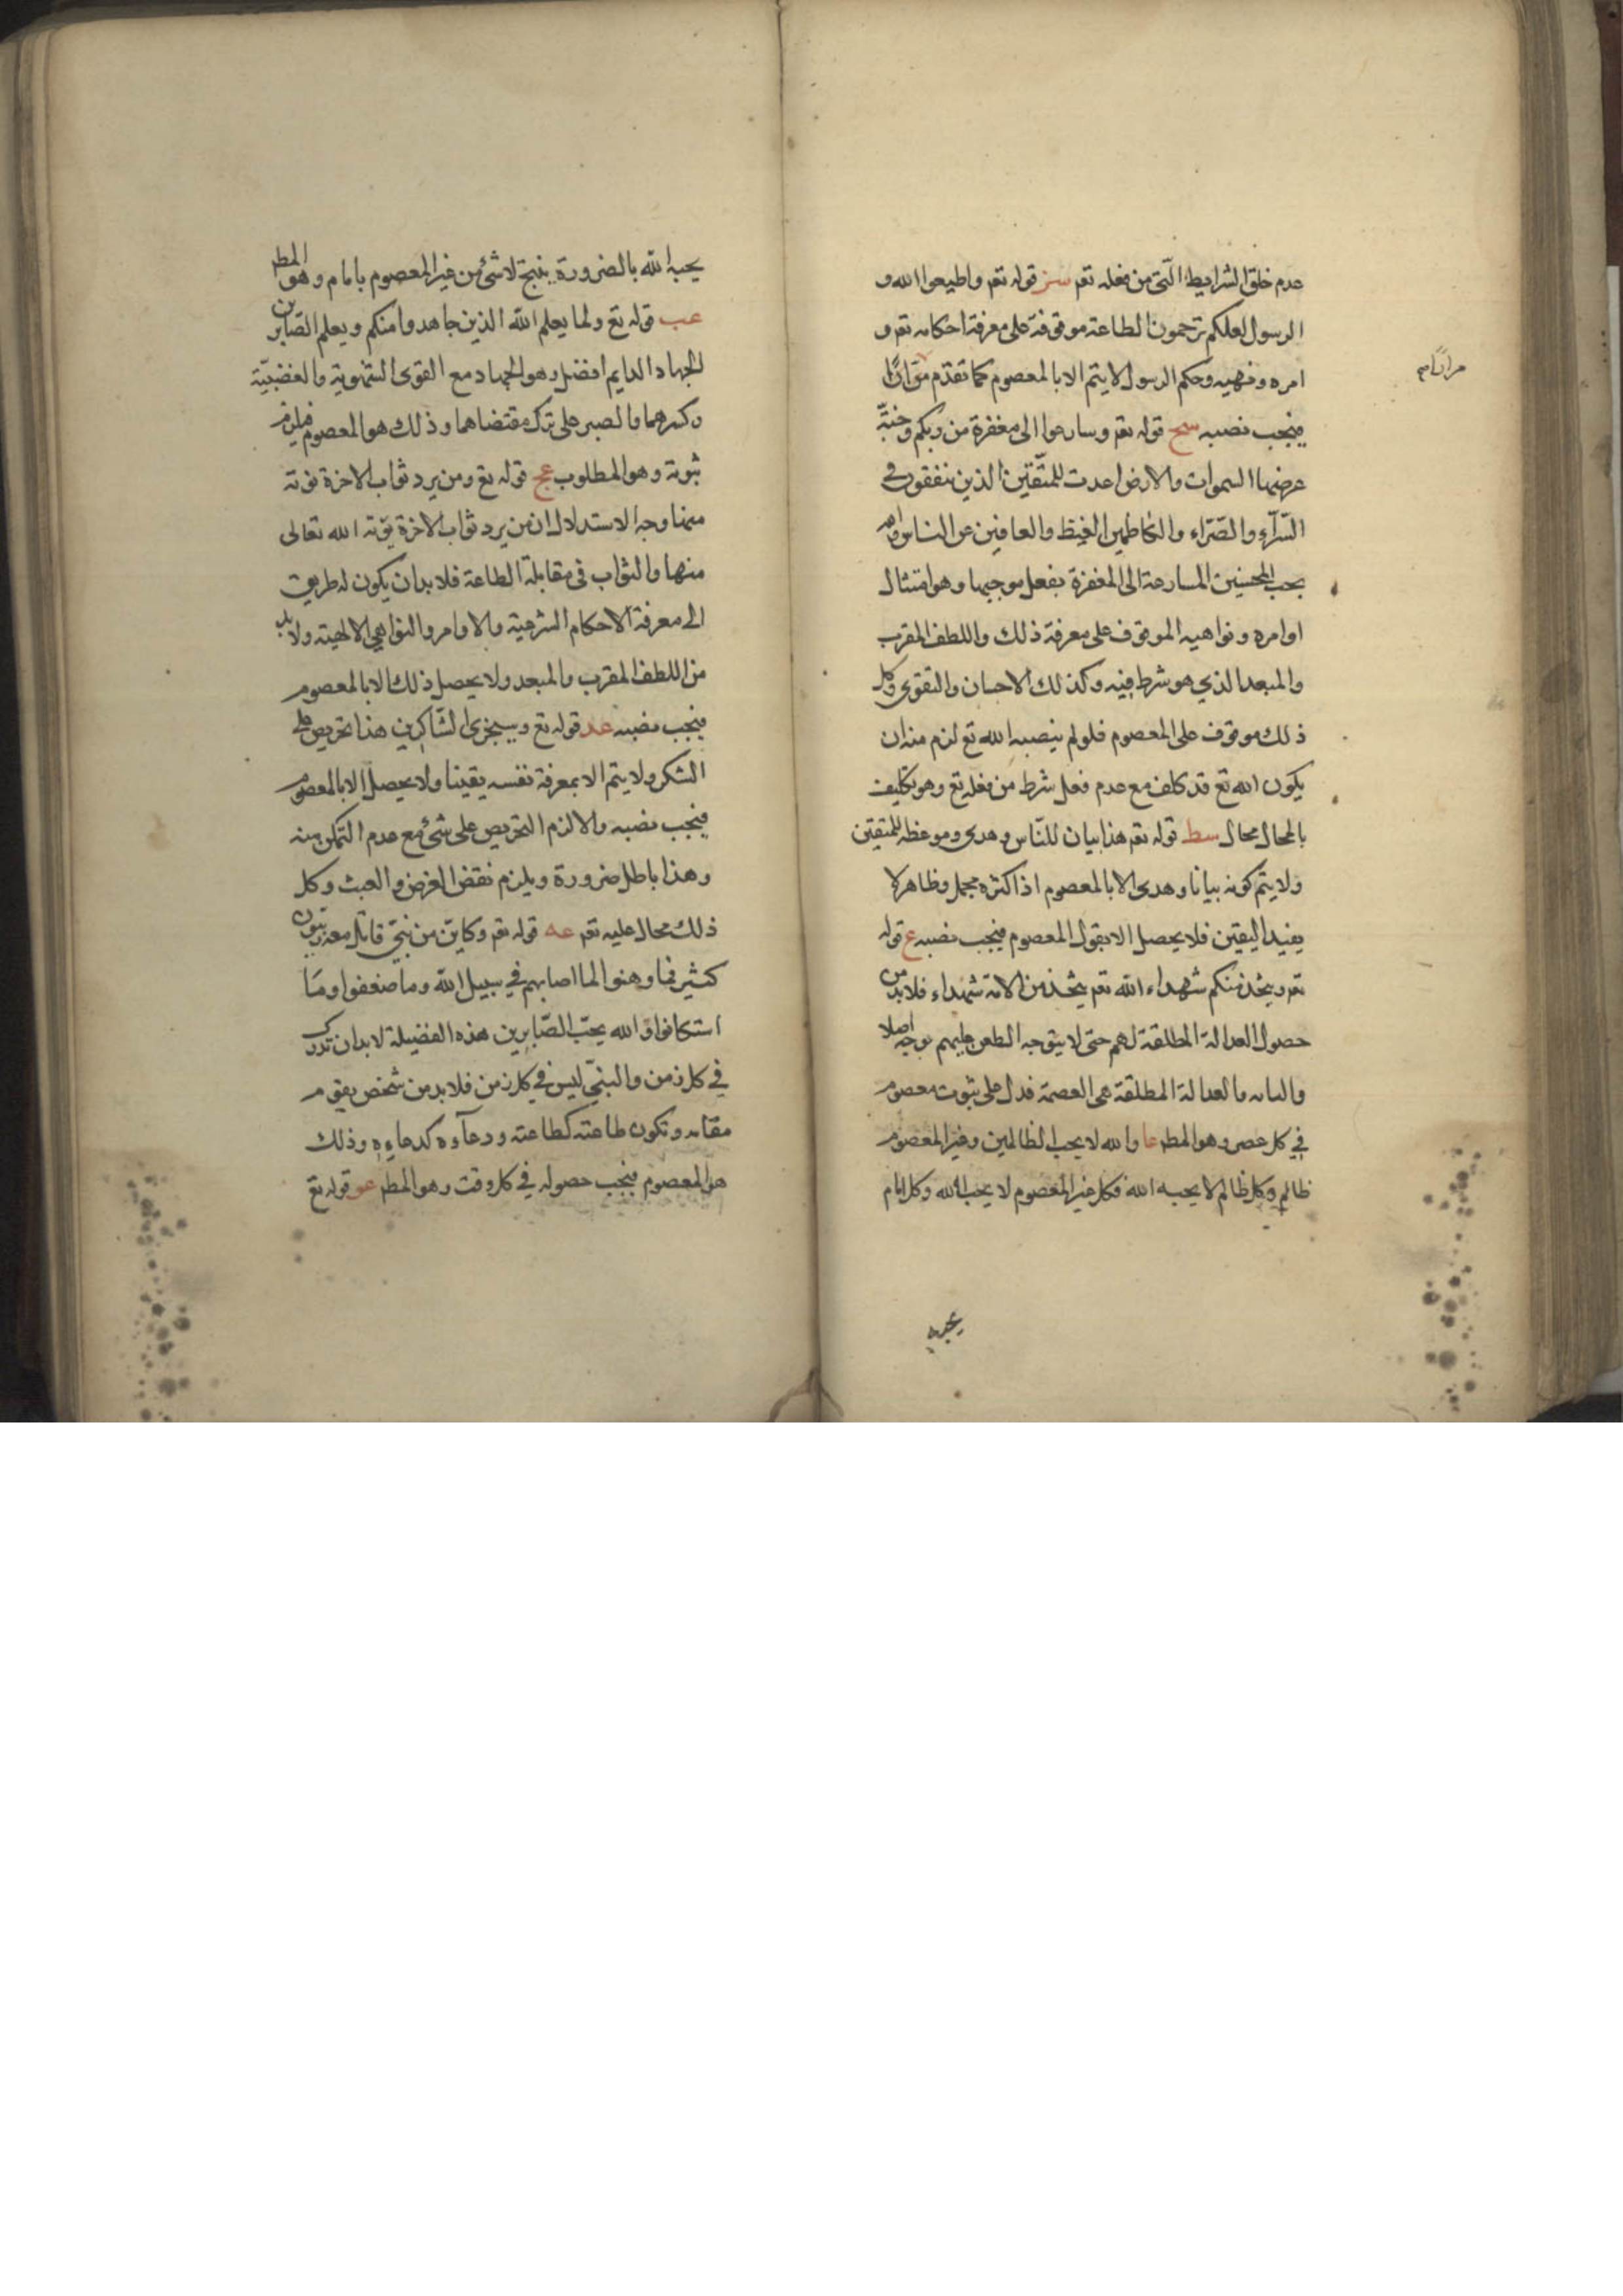 عدم خلق الشرايط التى من فعله تعم سز قوله تعم واطيعوا الله و
الرسول لعلكم ترحمون الطاعة موقوفة على معرفة احكامه تعم و
امره ونهيه وحكم الرسول لا يتم الا بالمعصوم كما تقدم مرارًا
مرارًا
فيجب نصبه سح قوله تعم وسارعوا الى مغفرة من ربكم وجنة
عرضها السموات والارض اعدت للمتّقين الذين ينفقون في
السّرآء والضّراء والكاظمين الغيظ والعافين عن الناس والله
يحب المحسنين المسارعة الى المغفرة بفعل موجبها وهو امتثال
اوامره ونواهيه الموقوف على معرفة ذلك واللطف المقرب
والمبعد الذي هو شرط فيه وكذلك الاحسان والتقوى وكل
ذلك موقوف على المعصوم فلو لم ينصبه الله تع لزم منه ان
يكون الله تع قد كلف مع عدم فعل شرط من فعله تع وهو تكليف
بالمحال محال سط قوله تعم هذا بيان للنّاس وهدى وموعظه للمتقين
ولا يتم كونه بيانا وهدى الا بالمعصوم اذ اكثره مجمل وظاهر لا
يفيد اليقين فلا يحصل الا بقول المعصوم فيجب نصبه ع قوله
تعم ويتخذ منكم شهداء الله تعم يتخذ من الامة شهداء فلا بد من
حصول العدالة المطلقة لهم حتى لا يتوجه الطعن عليهم بوجه اصلا
والعدالة المطلقة هى العصمة فدل على ثبوت معصوم
في كل عصر وهو المطم عا والله لا يحب الظالمين وغير المعصوم
ظالم وكل ظالم لا يحبه الله فكل غير المعصوم لا يحبه الله وكل امام
يحبه
يحبه الله بالضرورة ينتج لا شئ من غير المعصوم بامام وهو المطم
عب قوله تع ولما يعلم الله الذين جاهدوا منكم ويعلم الصّابرين
الجهاد الدايم افضل وهو الجهاد مع القوى الشهوية والغضبيّة
وكسرهما والصبر على ترك مقتضاهما وذلك هو المعصوم فيلزم
ثبوته وهو المطلوب عج قوله تع ومن يرد ثواب الاخرة نؤته
منها وجه الاستدلال ان من يرد ثواب الاخرة يؤته الله تعالى
منها والثواب فى مقابلة الطاعة فلا بد ان يكون له طريق
الى معرفة الاحكام الشرعية والاوامر والنواهي الالهية ولا بد
من اللطف المقرب والمبعد ولا يحصل ذلك الا بالمعصوم
فيجب نصبه عد قوله تع وسيجزى الشّاكرين هذا تحريص على
الشكر ولا يتم الا بمعرفة نفسه يقينا ولا يحصل الا بالمعصوم
فيجب نصبه والا لزم التحريص على شئ مع عدم التمكن منه
وهذا باطل ضرورة ويلزم نقض الغرض والعبث وكل
ذلك محال عليه تعم عه قوله تعم وكاين من نبيّ قاتل معه ربيّون
كثير فما وهنوا لما اصابهم في سبيل الله وما ضعفوا ومَا
استكانوا والله يحبّ الصّابرين هذه الفضيلة لا بد ان تدرك
في كل زمن والنبيّ ليس في كل زمن فلا بد من شخص يقوم
مقامه وتكون طاعته كطاعته ودعآوه كدعايه وذلك
هو المعصوم فيجب حصوله في كل وقت وهو المطم عو قوله تع